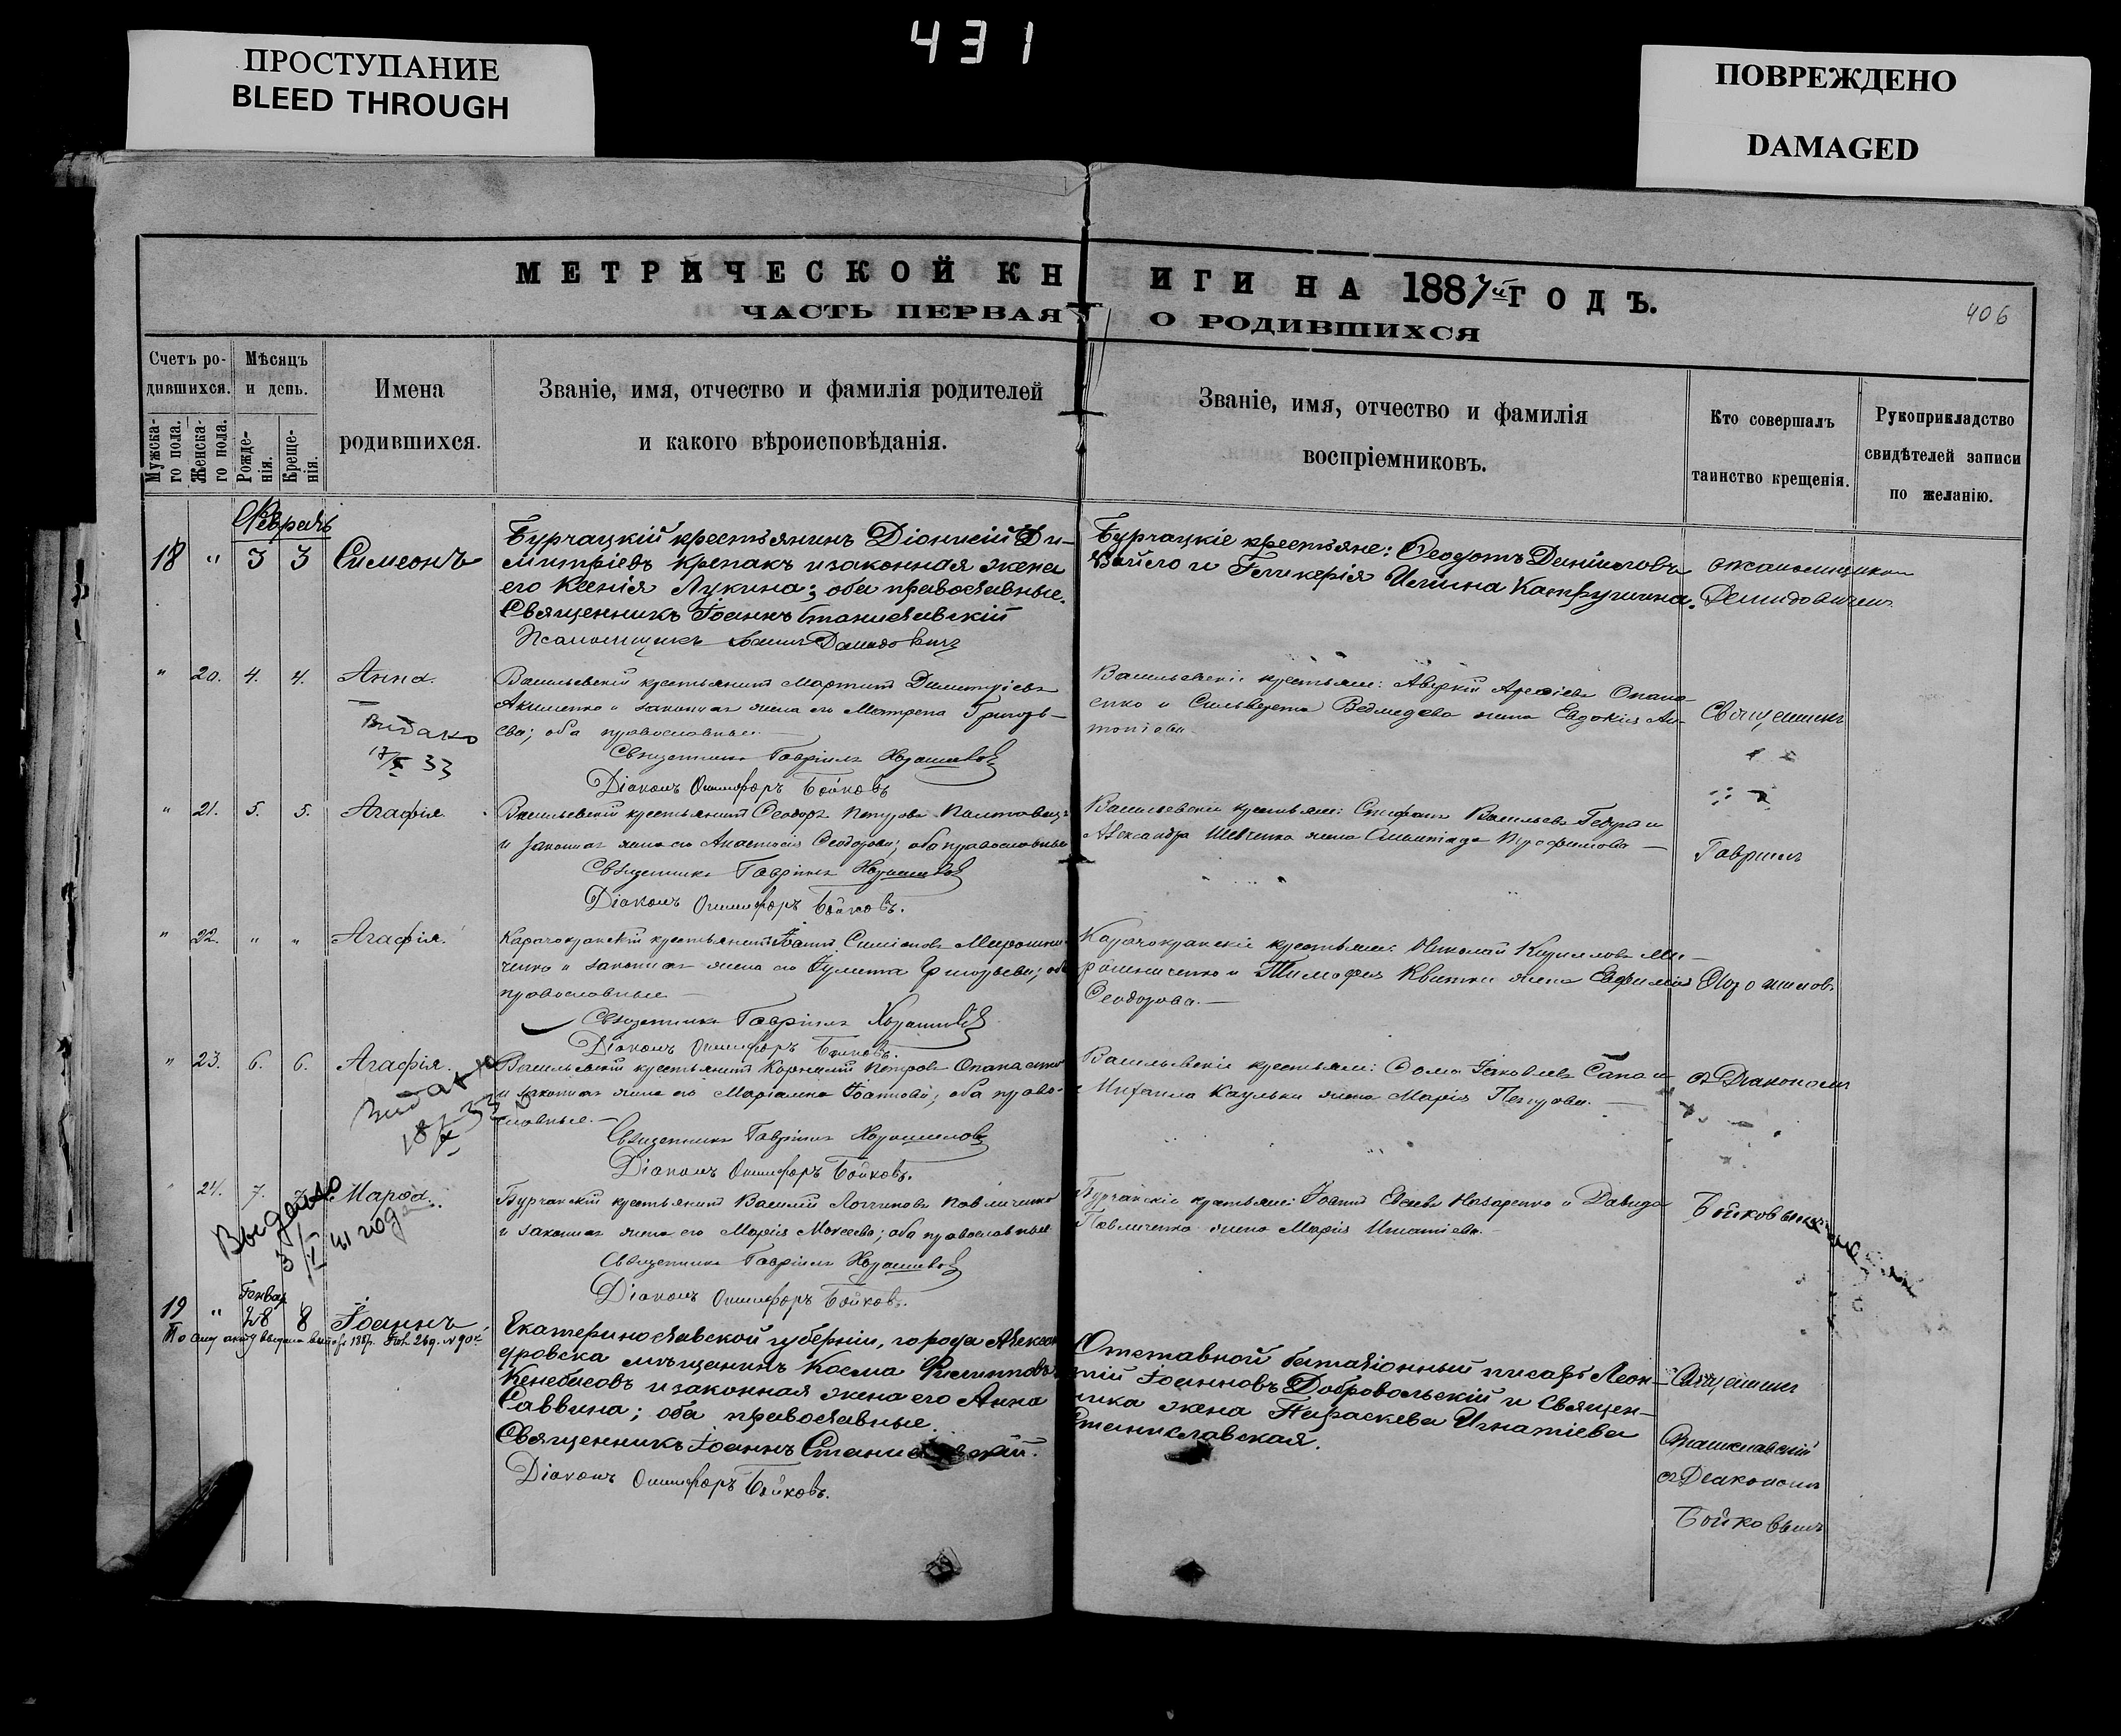 431
ПРОСТУПАНИЕ
BLEED THROUGH
ПОВРЕЖДЕНО
DAMAGED
МЕТРИЧЕСКОЙ КНИГИ НА 1887й ГОДЪ.
ЧАСТЬ ПЕРВАЯ О РОДИВШИХСЯ
406
Счетъ ро-
дившихся.
Мужска-
го пола.
Женска-
го пола.
Мѣсяцъ
и день.
Рожде-
нія.
Креще-
нія.
Имена
родившихся.
Званіе, имя, отчество и фамилія родителей
и какого вѣроисповѣданія.
Званіе, имя, отчество и фамилія
воспріемниковъ.
Кто совершалъ
таинство крещенія.
Рукоприкладство
свидѣтелей записи
по желанію.
Февраль
18 " 3 3 Симеонъ
Бурчацкій крестьянинъ Діонисій Ди-
митріевъ Крепакъ и законная жена
его Ксенія Лукина; оба православные.
Священникъ Іоаннъ Станиславскій
Псаломщикъ Демидовичъ
Бурчацкіе крестьяне: Ѳеодотъ Даніиловъ
и Гликерія Илиина
Демидовичем
" 20. 4. 4. Анна.
Видако
17/X 33
Васильевскій крестьянинъ Мартинъ Димитріевъ
Акименко и законная жена его Матрена Григорь-
ева; оба православные.
Священникъ Гавріилъ Хорошиловъ
Діаконъ Онисифоръ Бойковъ
Васильевскіе крестьяне: Аверкій Опана-
сенко и Сильвестра Ведмедева жена Евдокія Ан-
тоніева.
Священникъ
" 21. 5. 5. Агафія
Васильевскій крестьянинъ Ѳеодоръ Петровъ
и законная жена его Анастасія Ѳеодорова; оба православные
Священникъ Гавріилъ Хорошиловъ
Діаконъ Онисифоръ Бойковъ.
Васильевскіе крестьяне: Стефанъ Васильевъ и
Александра Шевченко жена Олимпіада Трофимова
Гавріилъ
" 22. " " Агафія.
Карачокракскій крестьянинъ Іоаннъ Симеоновъ Мирошни-
ченко и законная жена его Іулита Григорьева; оба
православные
Священникъ Гавріилъ Хорошиловъ
Діаконъ Онисифоръ Бойковъ.
Карачокракскіе крестьяне: Николай Кирилловъ Ми-
рошниченко и Тимофея Квитки жена Евфимія
Ѳеодорова.
Хорошиловъ
" 23. 6. 6. Агафія.
Видано
18/X 33
Васильевскій крестьянинъ Корнилій Петровъ Опанасенко
и законная жена его Маріамна Іоаннова; оба право-
славные.
Священникъ Гавріилъ Хорошиловъ
Діаконъ Онисифоръ Бойковъ.
Васильевскіе крестьяне: Ѳома Іаковлевъ Сапа и
Михаила Каульки жена Марія Петрова.
съ Діакономъ
" 24. 7. 7. Марѳа.
Выдано
3/II 41 года
Бурчакскій крестьянинъ Василій Логгиновъ Павличенко
и законная жена его Марія Моисеева; оба православные
Священникъ Гавріилъ Хорошиловъ
Діаконъ Онисифоръ Бойковъ.
Бурчакскіе крестьяне: Іоаннъ Евсеевъ Назаренко и Давида
Павличенко жена Марія Игнатіева.
Бойковымъ
Январ
19 " 28 8 Іоаннъ
Екатеринославской губерніи, города Алексан-
дровска мѣщанинъ Косма Филипповъ
Кенебасовъ и законная жена его Анна
Саввина; оба православные.
Священникъ Іоаннъ Станиславскій.
Діаконъ Онисифоръ Бойковъ.
Отставной баталіонный писарь Леон-
тій Іоанновъ Добровольскій и Священ-
ника жена Параскева Игнатіева
Станиславская.
Священникъ
Станиславскій
съ Діакономъ
Бойковымъ